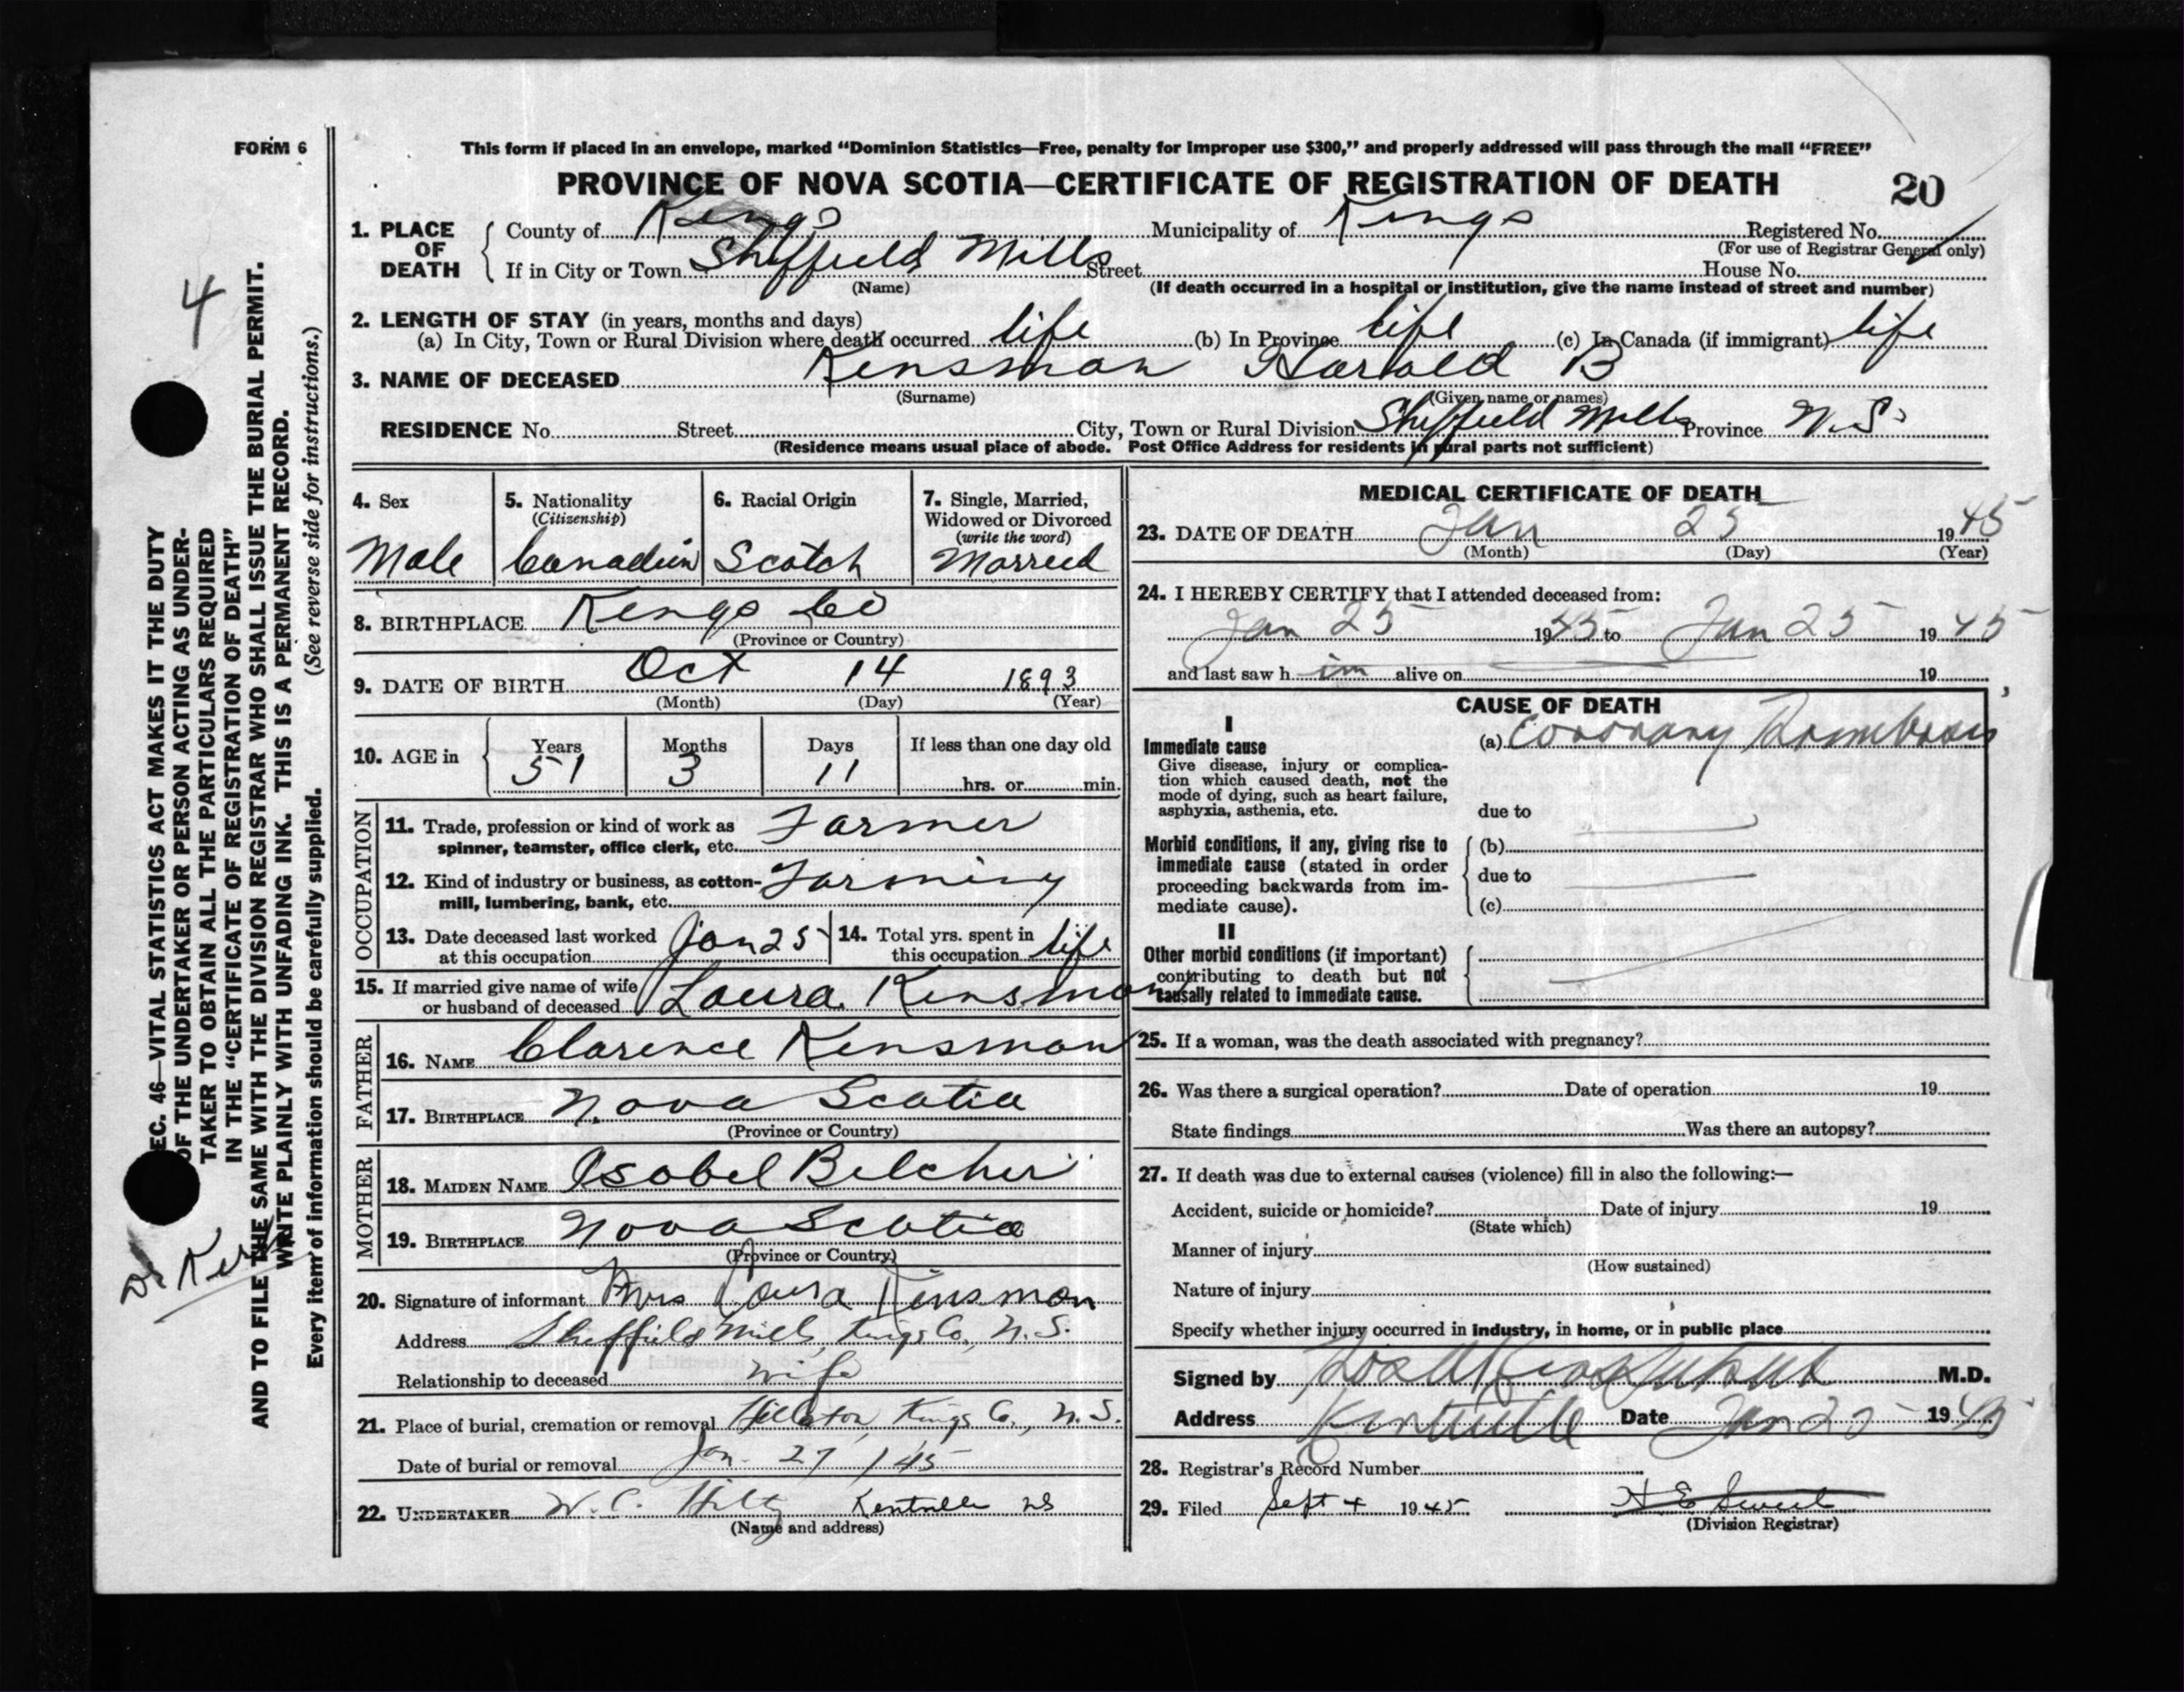 FORM 6
This form if placed in an envelope, marked “Dominion Statistics—Free, penalty for improper use $300,” and properly addressed will pass through the mail “FREE”
PROVINCE OF NOVA SCOTIA—CERTIFICATE OF REGISTRATION OF DEATH 20
1. PLACE OF DEATH
County of Kings Municipality of Kings Registered No.
(For use of Registrar General only)
If in City or Town Sheffield Mills Street House No.
(Name) (If death occurred in a hospital or institution, give the name instead of street and number)
2. LENGTH OF STAY (in years, months and days)
(a) In City, Town or Rural Division where death occurred life (b) In Province life (c) In Canada (if immigrant) life
3. NAME OF DECEASED Kinsman Harold B
(Surname) (Given name or names)
RESIDENCE No. Street City, Town or Rural Division Sheffield Mills Province N.S.
(Residence means usual place of abode. Post Office Address for residents in rural parts not sufficient)
4. Sex
Male
5. Nationality
(Citizenship)
Canadian
6. Racial Origin
Scotch
7. Single, Married,
Widowed or Divorced
(write the word)
Married
8. BIRTHPLACE Kings Co
(Province or Country)
9. DATE OF BIRTH Oct 14 1893
(Month) (Day) (Year)
10. AGE in
Years Months Days If less than one day old
51 3 11
hrs. or min.
OCCUPATION
11. Trade, profession or kind of work as
spinner, teamster, office clerk, etc. Farmer
12. Kind of industry or business, as cotton-
mill, lumbering, bank, etc. Farming
13. Date deceased last worked
at this occupation Jan 25
14. Total yrs. spent in
this occupation life
15. If married give name of wife
or husband of deceased Laura Kinsman
FATHER
16. NAME Clarence Kinsman
17. BIRTHPLACE Nova Scotia
(Province or Country)
MOTHER
18. MAIDEN NAME Isobel Belcher
19. BIRTHPLACE Nova Scotia
(Province or Country)
20. Signature of informant Mrs Laura Kinsman
Address Sheffield Mills, Kings Co, N.S.
Relationship to deceased wife
21. Place of burial, cremation or removal Kings Co., N.S.
Date of burial or removal Jan. 27 / 45
22. UNDERTAKER W. C. Hiltz Kentville NS
(Name and address)
MEDICAL CERTIFICATE OF DEATH
23. DATE OF DEATH Jan 25 1945
(Month) (Day) (Year)
24. I HEREBY CERTIFY that I attended deceased from:
Jan 25 1945 to Jan 25 1945
and last saw h im alive on 19
CAUSE OF DEATH
I
Immediate cause
Give disease, injury or complica-
tion which caused death, not the
mode of dying, such as heart failure,
asphyxia, asthenia, etc.
(a) Coronary Thrombosis
due to
Morbid conditions, if any, giving rise to
immediate cause (stated in order
proceeding backwards from im-
mediate cause).
(b)
due to
(c)
II
Other morbid conditions (if important)
contributing to death but not
causally related to immediate cause.
25. If a woman, was the death associated with pregnancy?
26. Was there a surgical operation? Date of operation 19
State findings Was there an autopsy?
27. If death was due to external causes (violence) fill in also the following:—
Accident, suicide or homicide? Date of injury 19
(State which)
Manner of injury
(How sustained)
Nature of injury
Specify whether injury occurred in industry, in home, or in public place
Signed by M.D.
Address Kentville Date Jan 25 1945
28. Registrar's Record Number
29. Filed Sept 4 1945 H E
(Division Registrar)
4
EC. 46—VITAL STATISTICS ACT MAKES IT THE DUTY
OF THE UNDERTAKER OR PERSON ACTING AS UNDER-
TAKER TO OBTAIN ALL THE PARTICULARS REQUIRED
IN THE “CERTIFICATE OF REGISTRATION OF DEATH”
AND TO FILE THE SAME WITH THE DIVISION REGISTRAR WHO SHALL ISSUE THE BURIAL PERMIT.
WRITE PLAINLY WITH UNFADING INK. THIS IS A PERMANENT RECORD.
Every item of information should be carefully supplied. (See reverse side for instructions.)
Dr